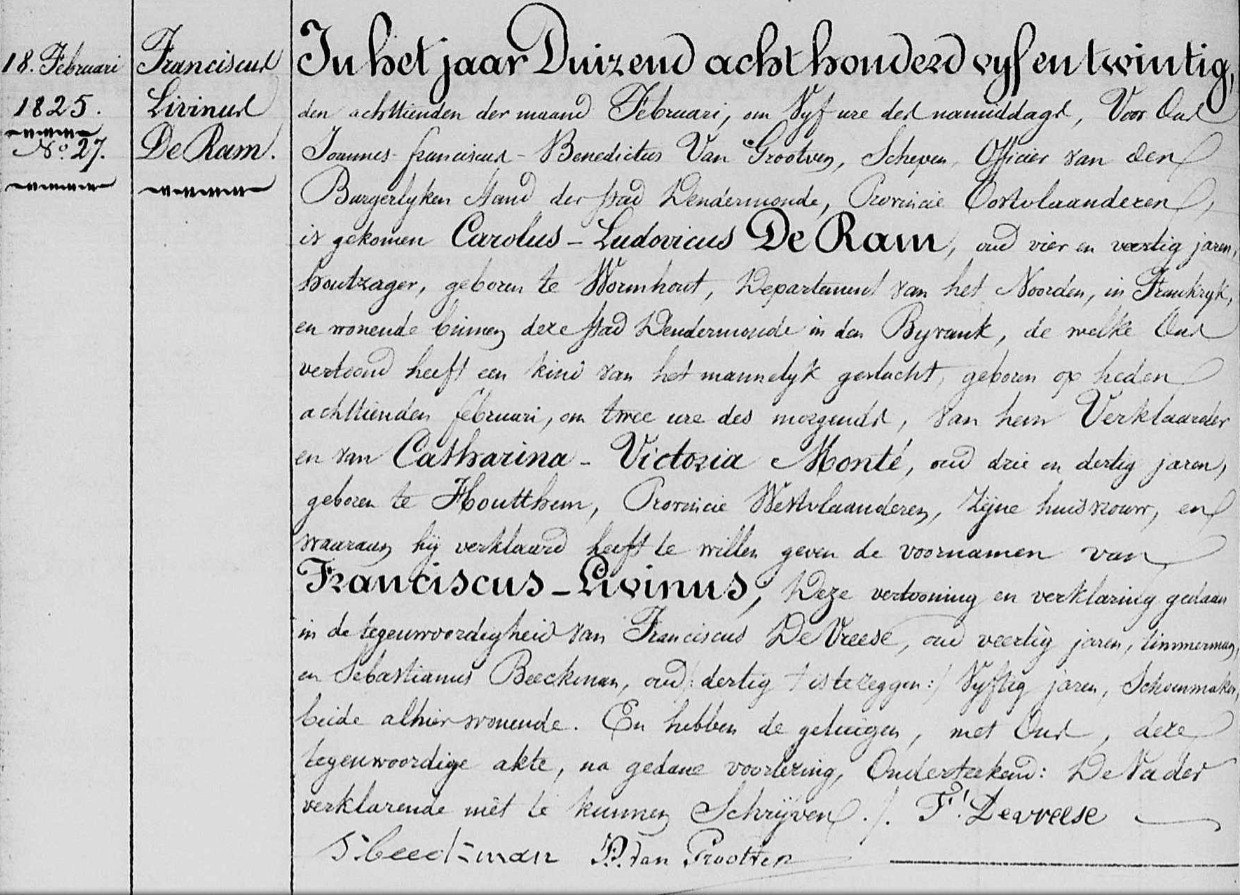 18. Februari
1825.
N.º 27.
Franciscus
Livinus
De Ram.
In het jaar Duizend acht honderd vyf en twintig,
den achttienden der maand Februari, om Vyf ure des namiddags, Voor Ons
Joannes-franciscus-Benedictus Van Grootven, Schepen, Officier van den
Burgerlyken Stand der Stad Dendermonde, Provincie Oostvlaanderen,
is gekomen Carolus-Ludovicus De Ram, oud vier en veertig jaren,
houtzager, geboren te Wormhout, Departement van het Noorden, in Frankryk,
en wonende binnen deze Stad Dendermonde in den Byvank, de welke Ons
vertoond heeft een kind van het mannelyk geslacht, geboren op heden
achttienden februari, om twee ure des morgends, van hem Verklaarder
en van Catharina-Victoria Monté, oud drie en dertig jaren,
geboren te Houtthem, Provincie Westvlaanderen, zijne huisvrouw, en
waaraan hij verklaard heeft te willen geven de voornamen van
Franciscus-Livinus, Deze vertooning en verklaring gedaan
in de tegenwoordigheid van Franciscus De Vreese, oud veertig jaren, timmerman,
en Sebastianus Beeckman, oud /: dertig is te zeggen :/ Vyftig jaren, Schoenmaker,
beide alhier wonende. En hebben de getuigen, met Ons, deze
tegenwoordige akte, na gedane voorlezing, Onderteekend: De Vader
verklarende niet te kunnen Schrijven ./. F. Devreese
S: beeckman Van Grootven